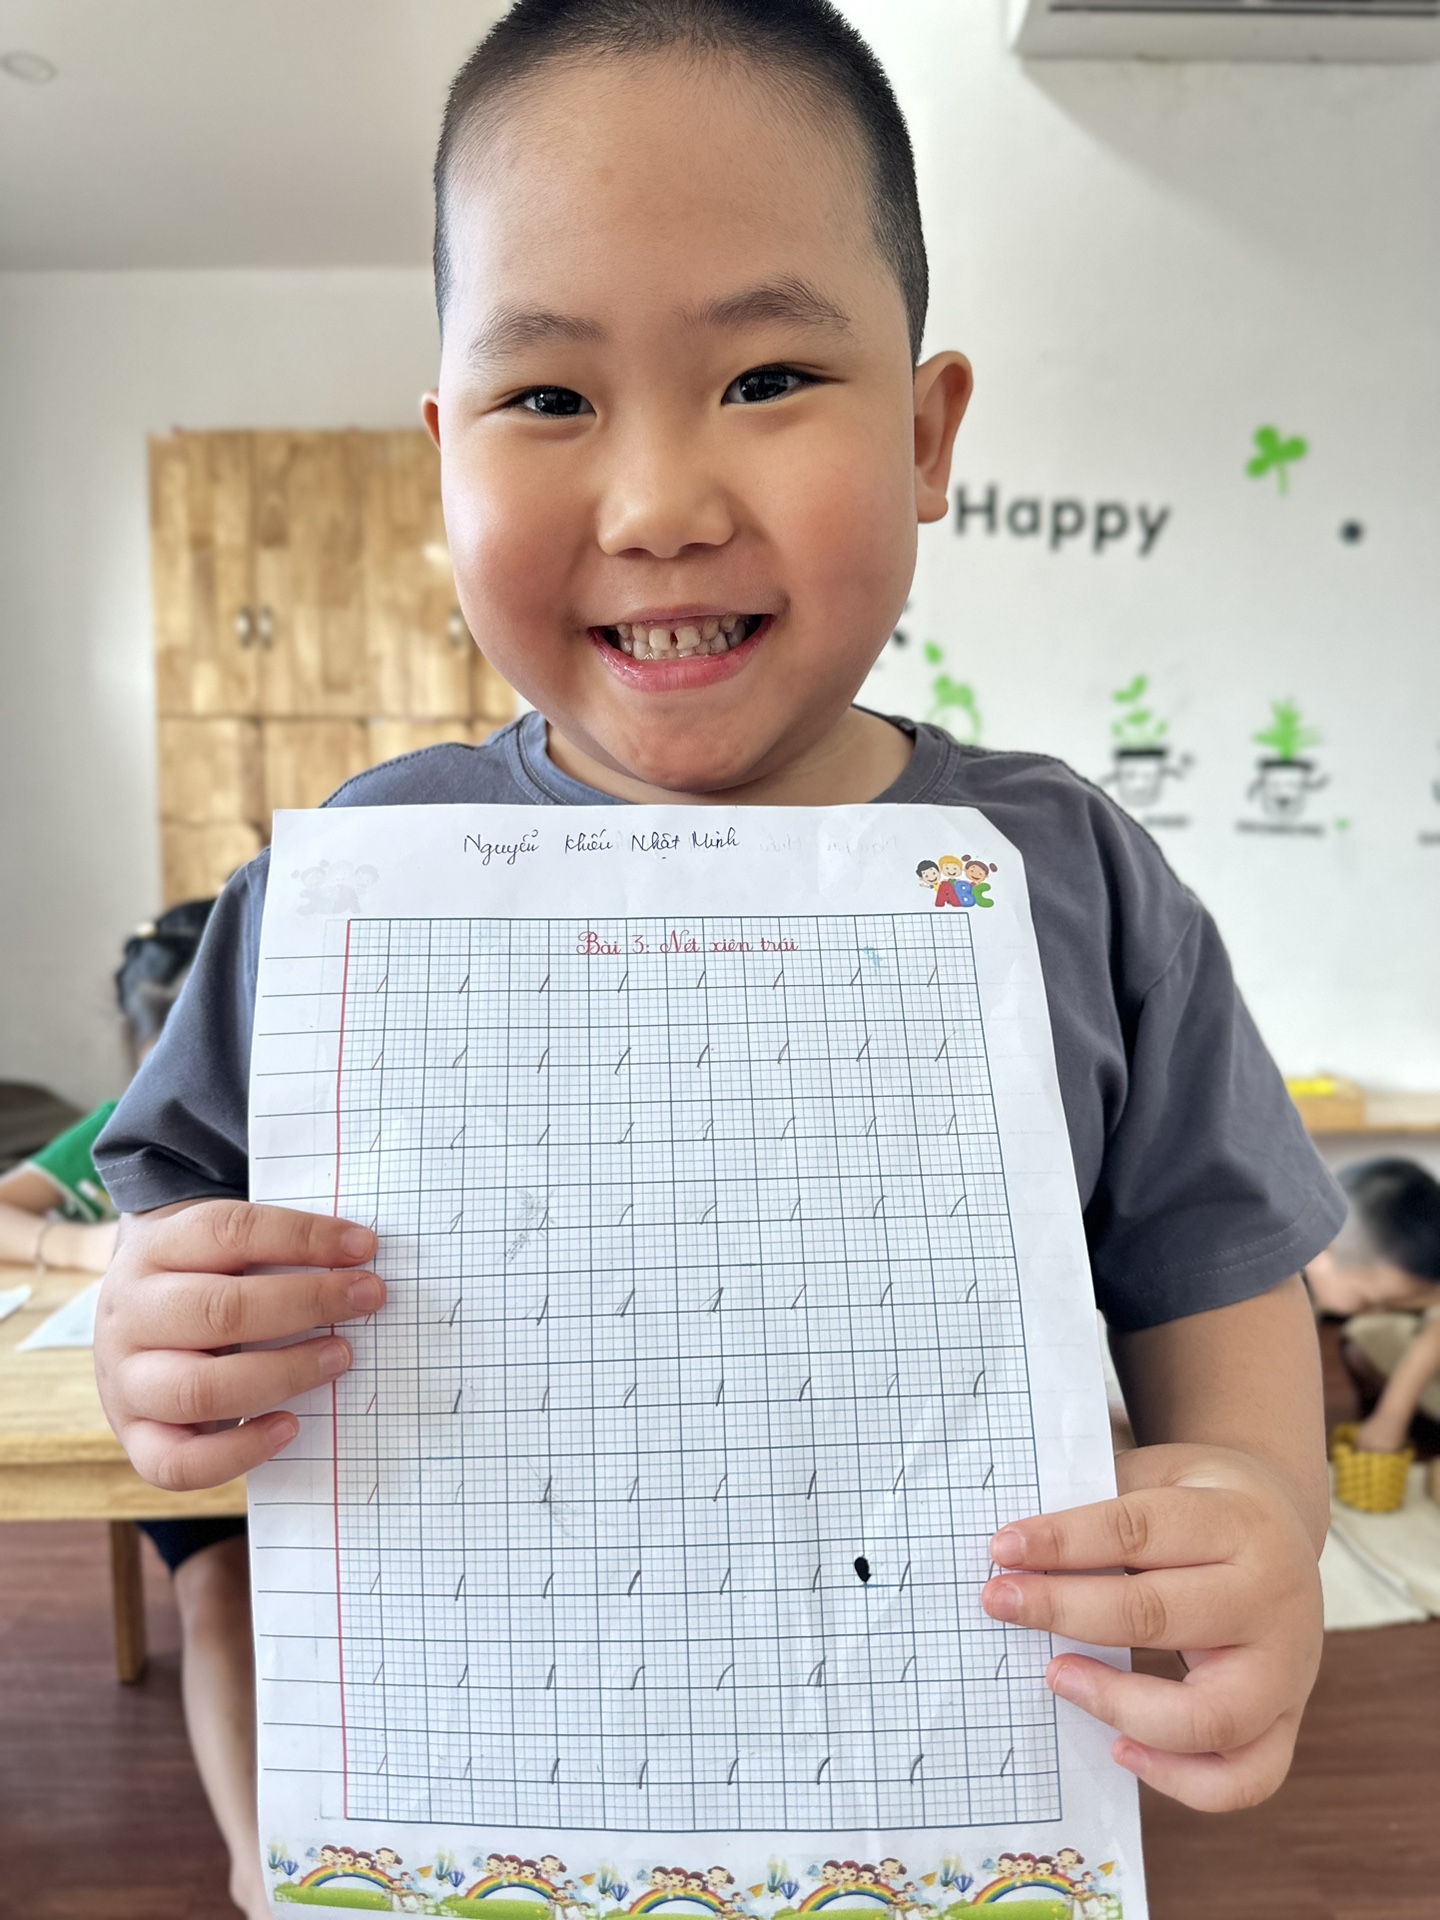 Happy
Nguyễn Khiếu Nhật Minh
ABC
Bài 3: Nét xiên trái